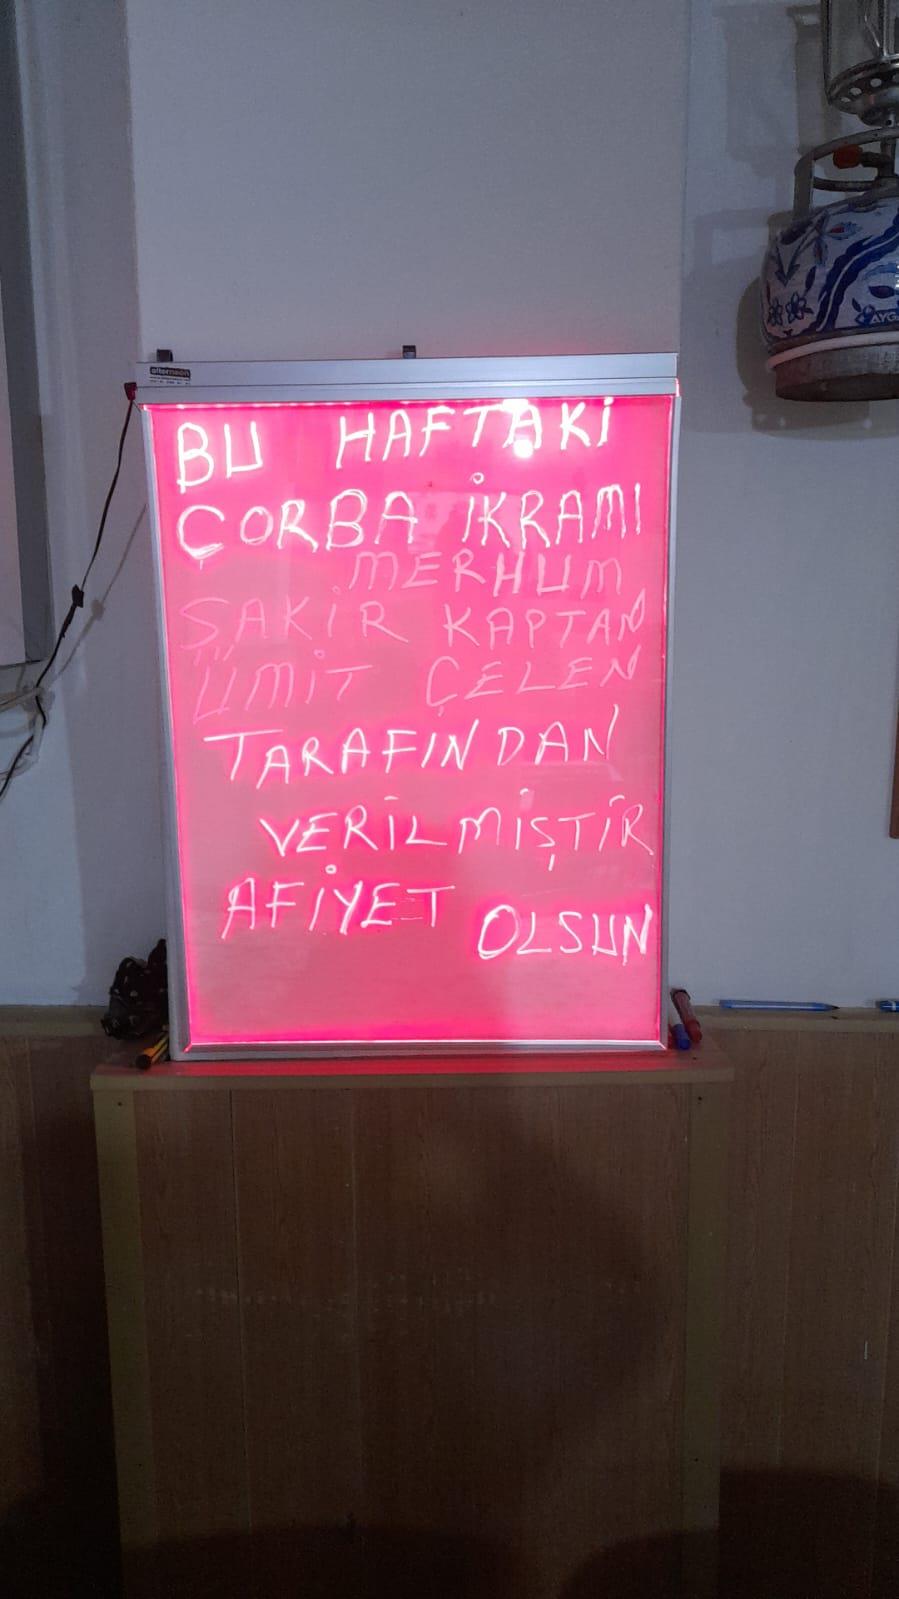 alterneon
BU HAFTAKİ
ÇORBA İKRAMI
MERHUM
ŞAKİR KAPTAN
ÜMİT ÇELEN
TARAFINDAN
VERİLMİŞTİR
AFİYET OLSUN
AYG